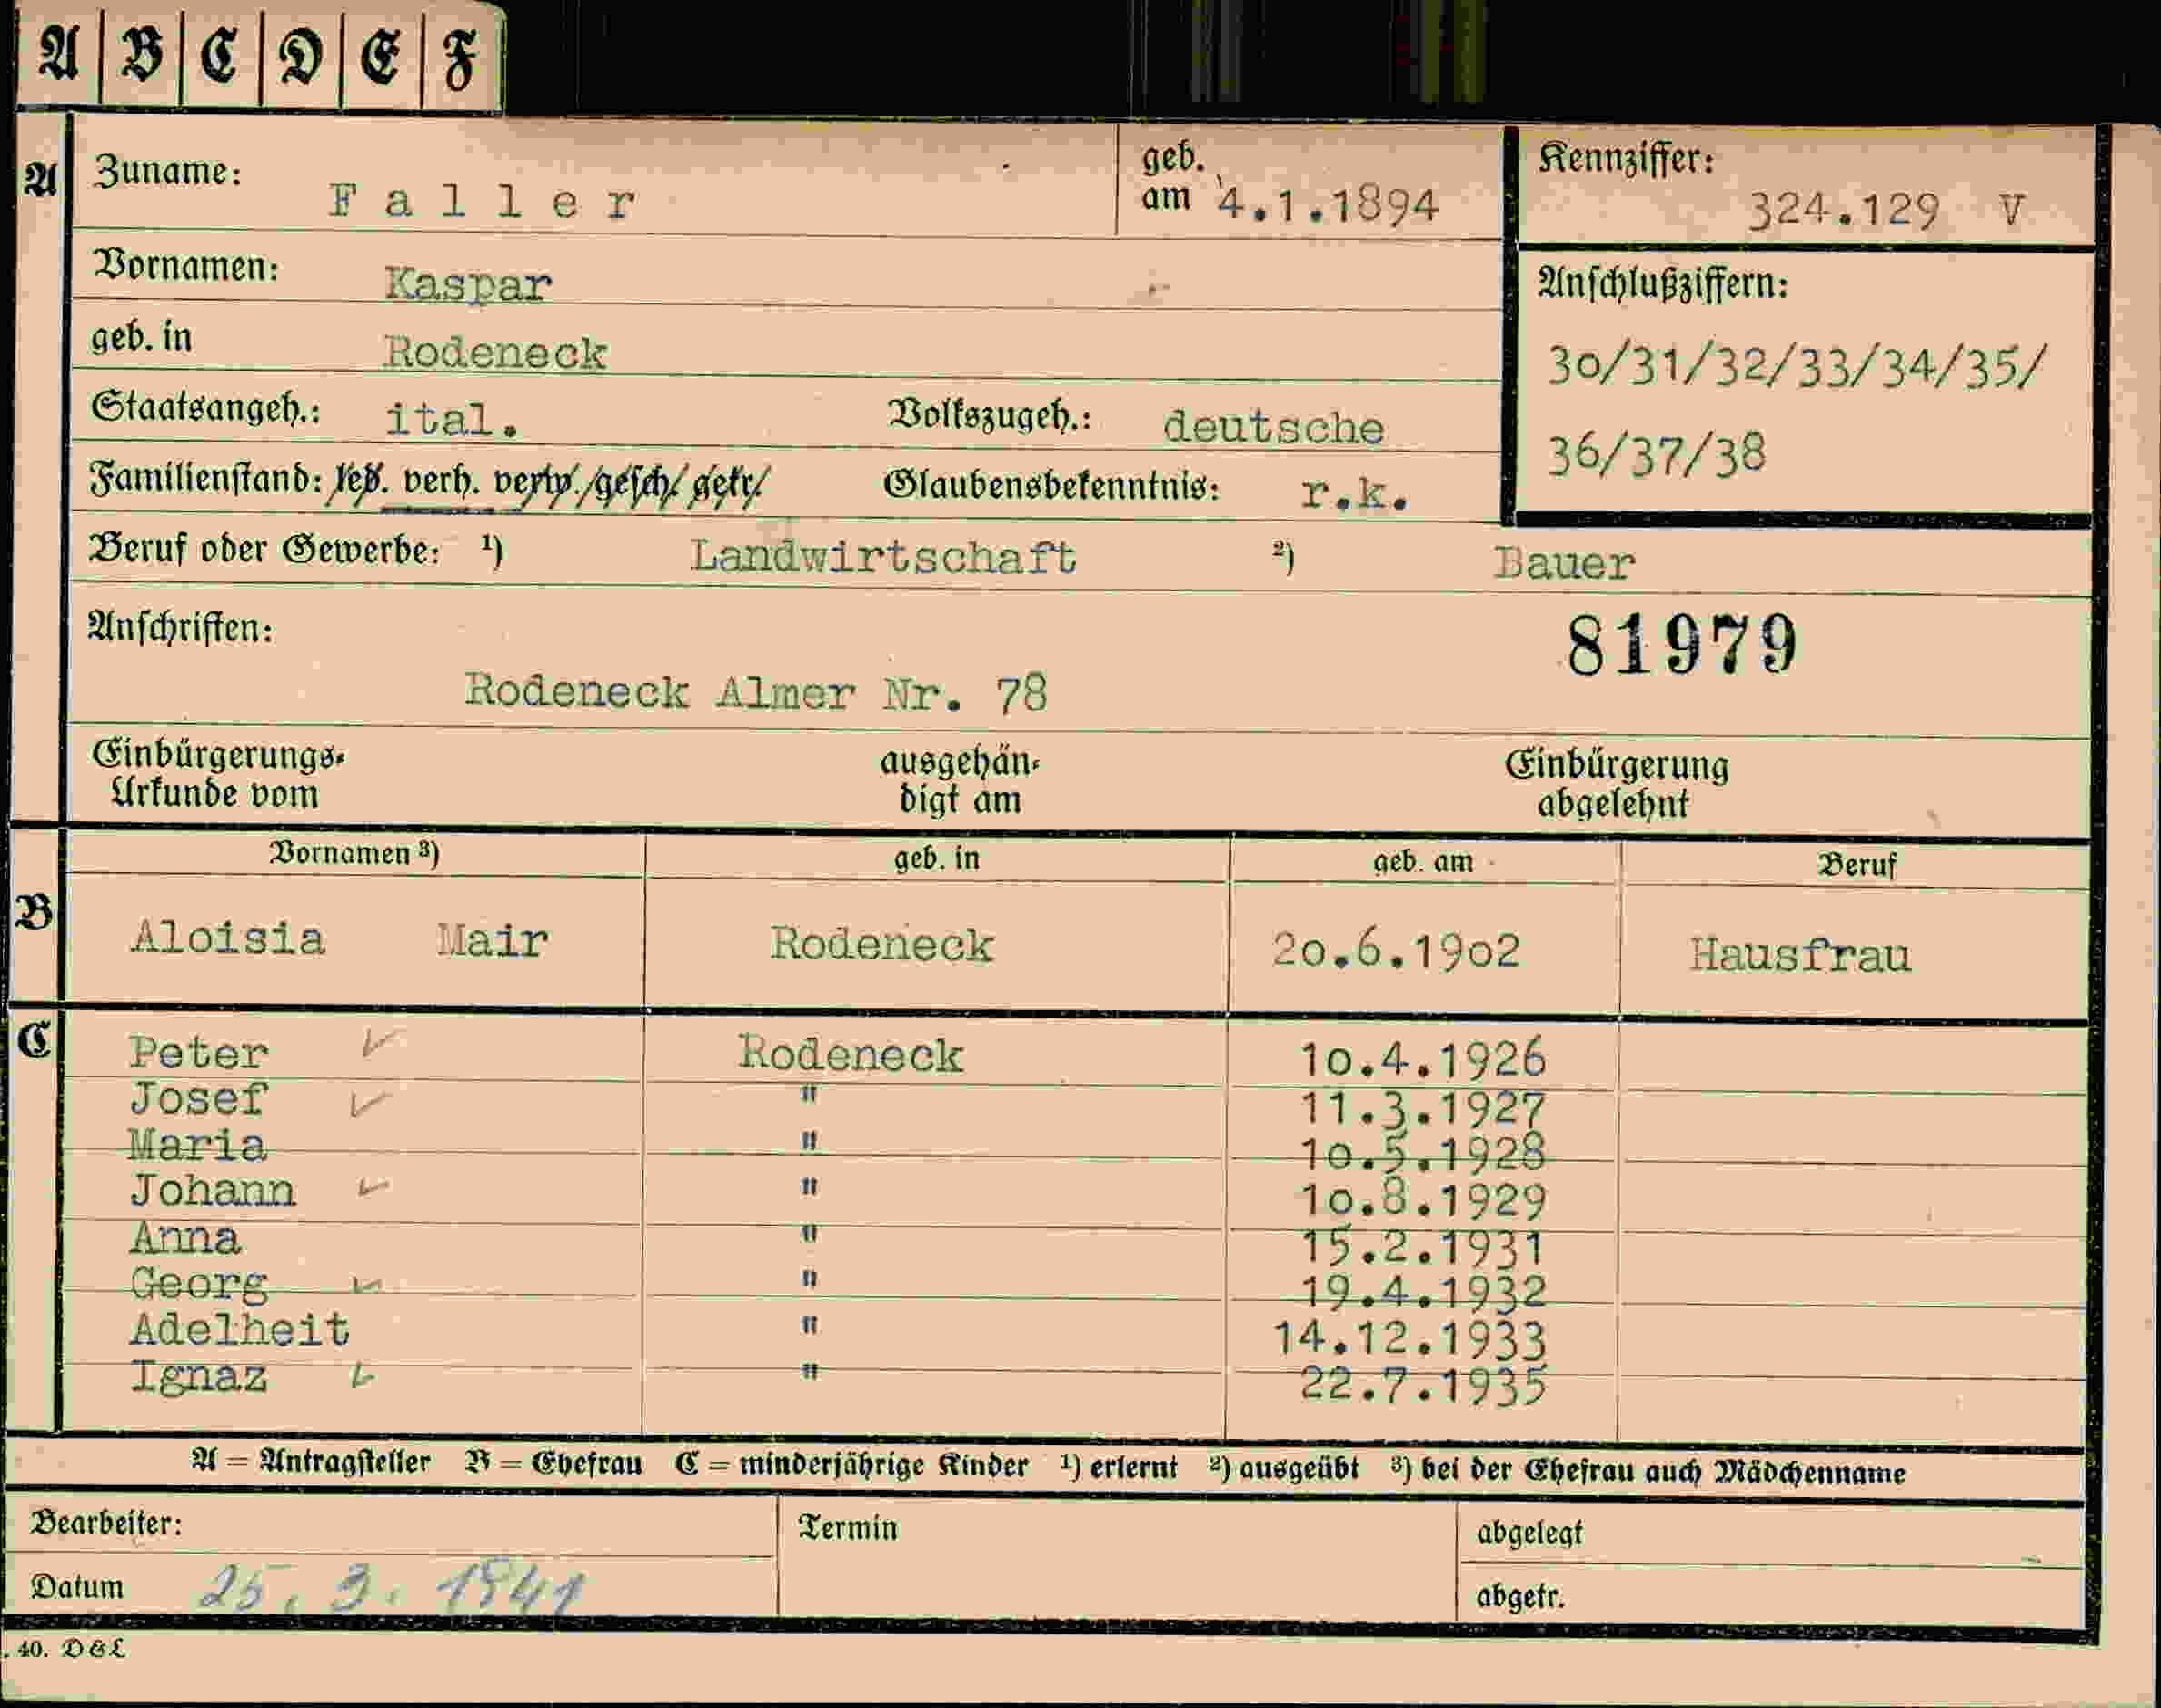 A B C D E F
A Zuname: Faller geb. am 4.1.1894 Kennziffer: 324.129 V
Vornamen: Kaspar Anschlußziffern:
geb. in Rodeneck 30/31/32/33/34/35/
Staatsangeh.: ital. Volkszugeh.: deutsche 36/37/38
Familienstand: led. verh. verw. gesch. getr. Glaubensbekenntnis: r.k.
Beruf oder Gewerbe: 1) Landwirtschaft 2) Bauer
Anschriften: 81979
Rodeneck Almer Nr. 78
Einbürgerungs- ausgehän- Einbürgerung
Urkunde vom digt am abgelehnt
Vornamen 3) geb. in geb. am Beruf
B Aloisia Mair Rodeneck 20.6.1902 Hausfrau
C Peter Rodeneck 10.4.1926
Josef " 11.3.1927
Maria " 10.5.1928
Johann " 10.8.1929
Anna " 15.2.1931
Georg " 19.4.1932
Adelheit " 14.12.1933
Ignaz " 22.7.1935
A = Antragsteller B = Ehefrau C = minderjährige Kinder 1) erlernt 2) ausgeübt 3) bei der Ehefrau auch Mädchenname
Bearbeiter: Termin abgelegt
Datum 25. 3. 1941 abgetr.
. 40. D&L